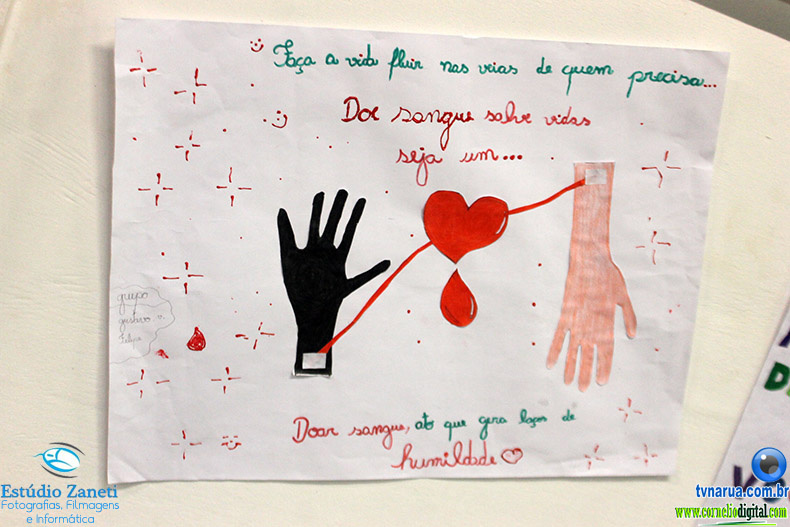 Faça a vida fluir nas veias de quem precisa...
Doe sangue salve vidas
seja um...
grupo
gustavo v.
Felipe
Doar sangue, ato que gera laços de
humildade
Estúdio Zaneti
Fotografias, Filmagens
e Informática
tvnarua.com.br
www.corneliodigital.com